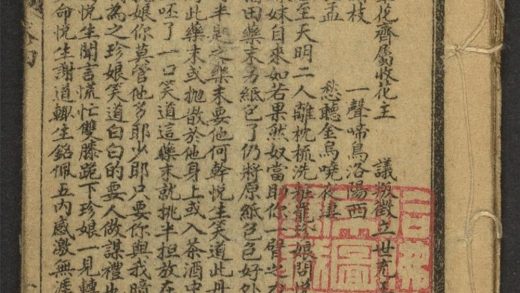 花齊屬花主　議叛徵立世充
枝　一聲啼鳥洛陽西
愁聽金烏曉夜
至天明二人離枕梳洗珍娘問悅
妹自來如若果然奴當助你一臂之力
藥末另紙包了仍將原紙包包好外
半之藥末要他何幹悅生笑道此丹
此藥末或拋散於他身上或入茶酒中
呸了一口笑道這藥末就挑半担放在
娘你莫管他多耶少耶只要你與我暗
為之珍娘笑道白白的要人做謀禮也
悅生聞言慌忙雙膝跪下珍娘一見轉
命悅生謝道輒生銘佩五內感激無涯